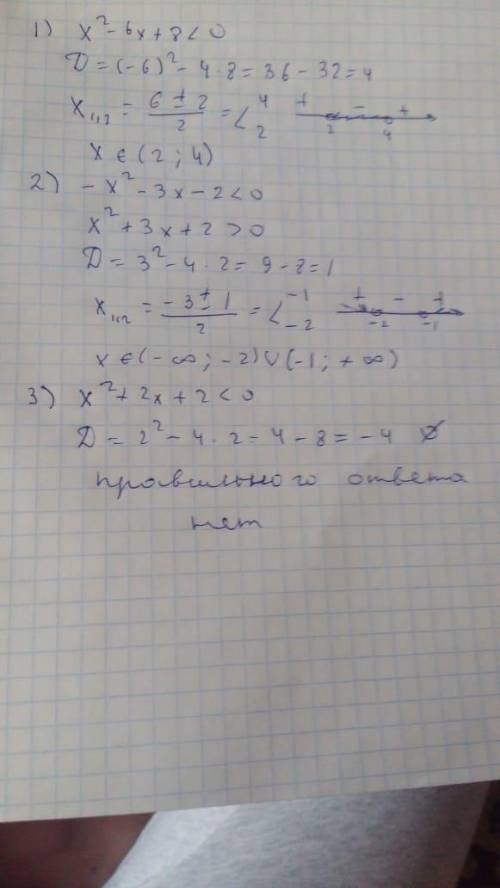 1) x² - 6x + 8 < 0
D = (-6)² - 4 · 8 = 36 - 32 = 4
x₁,₂ = (6 ± 2)/2 = < 4 2 + - + 2 4
x ∈ (2 ; 4)
2) - x² - 3x - 2 < 0
x² + 3x + 2 > 0
D = 3² - 4 · 2 = 9 - 8 = 1
x₁,₂ = (-3 ± 1)/2 = < -1 -2 + - + -2 -1
x ∈ (- ∞ ; -2) ∪ (-1 ; + ∞)
3) x² + 2x + 2 < 0
D = 2² - 4 · 2 = 4 - 8 = -4 ∅
правильного ответа
нет